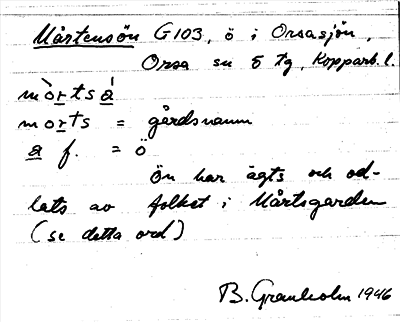 Mårtensön G103, ö i Orsasjön,
Orsa sn 5 tg, Kopparb. l.
mòrtsá
morts = gårdsnamn
a f. = ö
Ön har ägts och od-
lats av folket i Mårtsgarden
(se detta ord)
B. Granholm 1946